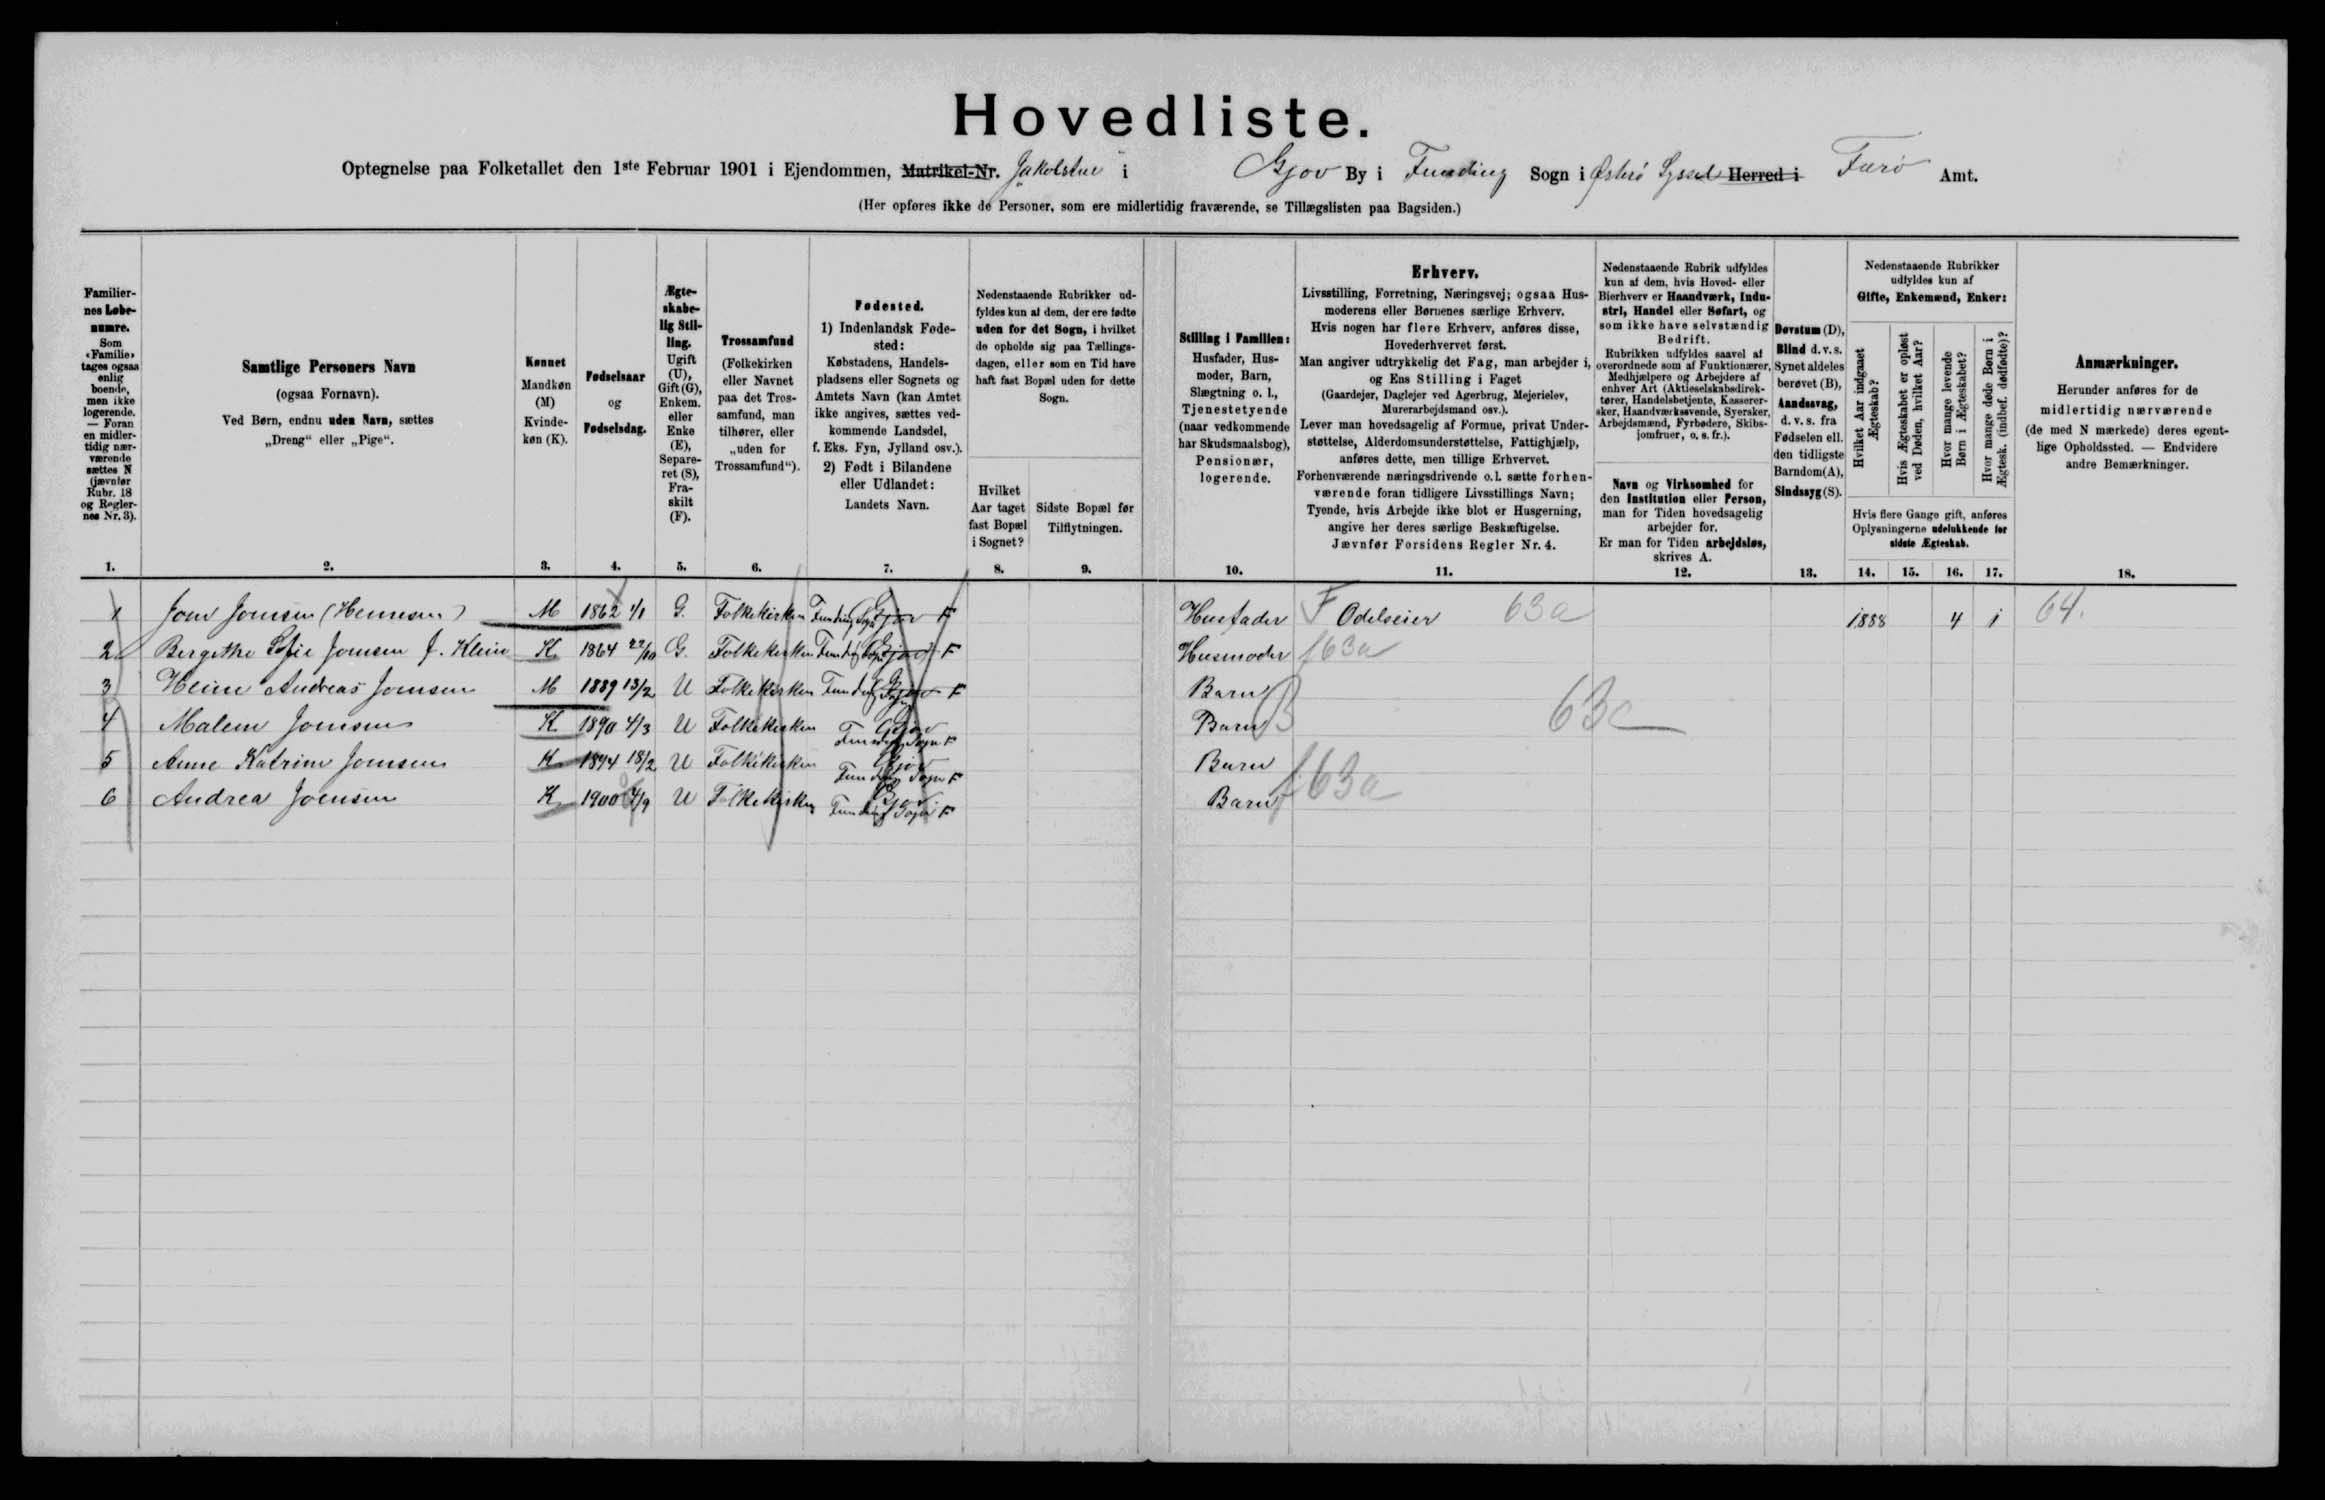 Hovedliste.
Optegnelse paa Folketallet den 1ste Februar 1901 i Ejendommen, Matrikel-Nr. "Jakobstue" i Gjov By i Funding Sogn i Østerø Syssel Herred i Færø Amt.
(Her opføres ikke de Personer, som ere midlertidig fraværende, se Tillægslisten paa Bagsiden.)
Familier-
nes Løbe-
numre.
Som
«Familie»
tages ogsaa
enlig
boende,
men ikke
logerende.
— Foran
en midler-
tidig nær-
værende
sættes N
(jævnfør
Rubr. 18
og Regler-
nes Nr. 3).
Samtlige Personers Navn
(ogsaa Fornavn).
Ved Børn, endnu uden Navn, sættes
„Dreng“ eller „Pige“.
Kønnet
Mandkøn
(M)
Kvinde-
køn (K).
Fødselsaar
og
Fødselsdag.
Ægte-
skabe-
lig Stil-
ling.
Ugift
(U),
Gift (G),
Enkem.
eller
Enke
(E),
Separe-
ret (S),
Fra-
skilt
(F).
Trossamfund
(Folkekirken
eller Navnet
paa det Tros-
samfund, man
tilhører, eller
„uden for
Trossamfund“).
Fødested.
1) Indenlandsk Føde-
sted:
Købstadens, Handels-
pladsens eller Sognets og
Amtets Navn (kan Amtet
ikke angives, sættes ved-
kommende Landsdel,
f. Eks. Fyn, Jylland osv.).
2) Født i Bilandene
eller Udlandet:
Landets Navn.
Nedenstaaende Rubrikker ud-
fyldes kun af dem, der ere fødte
uden for det Sogn, i hvilket
de opholde sig paa Tællings-
dagen, eller som en Tid have
haft fast Bopæl uden for dette
Sogn.
Hvilket
Aar taget
fast Bopæl
i Sognet?
Sidste Bopæl før
Tilflytningen.
Stilling i Familien:
Husfader, Hus-
moder, Barn,
Slægtning o. l.,
Tjenestetyende
(naar vedkommende
har Skudsmaalsbog),
Pensionær,
logerende.
Erhverv.
Livsstilling, Forretning, Næringsvej; ogsaa Hus-
moderens eller Børnenes særlige Erhverv.
Hvis nogen har flere Erhverv, anføres disse,
Hovederhvervet først.
Man angiver udtrykkelig det Fag, man arbejder i,
og Ens Stilling i Faget
(Gaardejer, Daglejer ved Agerbrug, Mejerielev,
Murerarbejdsmand osv.).
Lever man hovedsagelig af Formue, privat Under-
støttelse, Alderdomsunderstøttelse, Fattighjælp,
anføres dette, men tillige Erhvervet.
Forhenværende næringsdrivende o. l. sætte forhen-
værende foran tidligere Livsstillings Navn;
Tyende, hvis Arbejde ikke blot er Husgerning,
angive her deres særlige Beskæftigelse.
Jævnfør Forsidens Regler Nr. 4.
Nedenstaaende Rubrik udfyldes
kun af dem, hvis Hoved- eller
Bierhverv er Haandværk, Indu-
stri, Handel eller Søfart, og
som ikke have selvstændig
Bedrift.
Rubrikken udfyldes saavel af
overordnede som af Funktionærer,
Medhjælpere og Arbejdere af
enhver Art (Aktieselskabsdirek-
tører, Handelsbetjente, Kasserer-
sker, Haandværkssvende, Syersker,
Arbejdsmænd, Fyrbødere, Skibs-
jomfruer, o. s. fr.).
Navn og Virksomhed for
den Institution eller Person,
man for Tiden hovedsagelig
arbejder for.
Er man for Tiden arbejdsløs,
skrives A.
Døvstum (D),
Blind d. v. s.
Synet aldeles
berøvet (B),
Aandssvag,
d. v. s. fra
Fødselen ell.
den tidligste
Barndom (A),
Sindssyg (S).
Nedenstaaende Rubrikker
udfyldes kun af
Gifte, Enkemænd, Enker:
Hvilket Aar indgaaet
Ægteskab?
Hvis Ægteskabet er opløst
ved Døden, hvilket Aar?
Hvor mange levende
Børn i Ægteskabet?
Hvor mange døde Børn i
Ægtesk. (indbef. dødfødte)?
Hvis flere Gange gift, anføres
Oplysningerne udelukkende for
sidste Ægteskab.
Anmærkninger.
Herunder anføres for de
midlertidig nærværende
(de med N mærkede) deres egent-
lige Opholdssted. — Endvidere
andre Bemærkninger.
1. 2. 3. 4. 5. 6. 7. 8. 9. 10. 11. 12. 13. 14. 15. 16. 17. 18.
1 Joen Joensen (Hennesen) M 1862 1/1 G. Folkekirken Funding Sogn Gjov F Husfader F Odelseier 63a 1888 4 1 64.
2 Bergithe Sofie Joensen f. Klein K 1864 22/10 G. Folkekirken Funding Sogn Gjov F Husmoder f63a
3 Heine Andreas Joensen M 1889 13/2 U Folkekirken Funding Sogn Gjov F Barn
4 Malene Joensen K 1890 4/3 U Folkekirken Gjov Funding Sogn F Barn B 63c
5 Anne Katrine Joensen K 1894 18/2 U Folkekirken Gjov Funding Sogn F Barn
6 Andrea Joensen K 1900 4/9 U Folkekirken Gjov Funding Sogn F Barn f63a